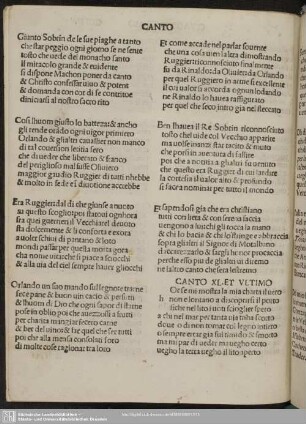 CANTO
Giunto Sobrin de le sue piaghe a tanto
che star peggio ogni giorno se ne sente
tosto che uede del monacho santo
il miracolo grande & euidente
si dispone Machon poner da canto
& Christo confessar uiuo & potente
& domanda con cor di fe contrito
Cosi lhuom giusto lo battezza & ancho
gli rende orando ogni uigor primiero
Orlando & gli altri caualier non manco
di tal conuersion letitia fero
che di ueder che liberato & franco
del periglioso mal fusse Oliuiero
maggior gaudio Ruggier di tutti nhebbe
& molto in fede e in deuotione accrebbe
Era Ruggier dal di che giunse a nuoto
su questo scoglio poi statoui ognhora
fra quei guerrieri il Vecchiarel deuoto
sta dolcemente & li conforta & ora
a uoler schiui di pantano & loto
mondi passar per questa morta gora
cha nome uita che si piace a sciocchi
& alla uia del ciel sempre hauer gliocchi
Orlando un suo mando sul legno & trarne
fece pane & buon uin cacio & persutti
& lhuom di Dio che ogni sapor di starne
pose in oblio poi che auezzossi a frutti
per charita mangiar fecero carne
& ber del uino & far quel che fer tutti
poi che alla mensa consolati foro
di molte cose ragionar tra loro
Et come accade nel parlar souente
che una cosa uien laltra dimostrando
Ruggier riconosciuto finalmente
fu da Rinaldo da Oliuier da Orlando
per quel Ruggiero in arme si eccellente
il cui ualor saccorda ognun lodando
ne Rinaldo lo hauea raffigurato
per quel che seco intro gia nel steccato
Ben lhauea il Re Sobrin riconosciuto
tosto chel uide col Vecchio apparire
ma uolse inanzi star tacito & muto
che porsi in auentura di fallire
poi che a notitia a gli altri fu uenuto
che questo era Ruggier di cui lardire
la cortesia il ualor alto & profondo
si facea nominar per tutto il mondo
Et sapendosi gia che era christiano
tutti con lieta & con serena faccia
uengono a lui chi gli tocca la mano
& chi lo bacia & chi lo stringe & abbraccia
sopra gli altri il Signor di Montalbano
ne laltro canto che sera lo istretto
CANTO XL ET VLTIMO
Or se mi mostra la mia charta il uero
non e lontano a discoprirsi il porto
si che nel lito i uoti scioglier spero
a chi nel mar per tanta uia mha scorto
doue o di non tornar col legno intero
o sempre errar hebbi gia il uiso smorto
ma mi par di ueder ma ueggo certo
ueggo la terra ueggo il lito aperto